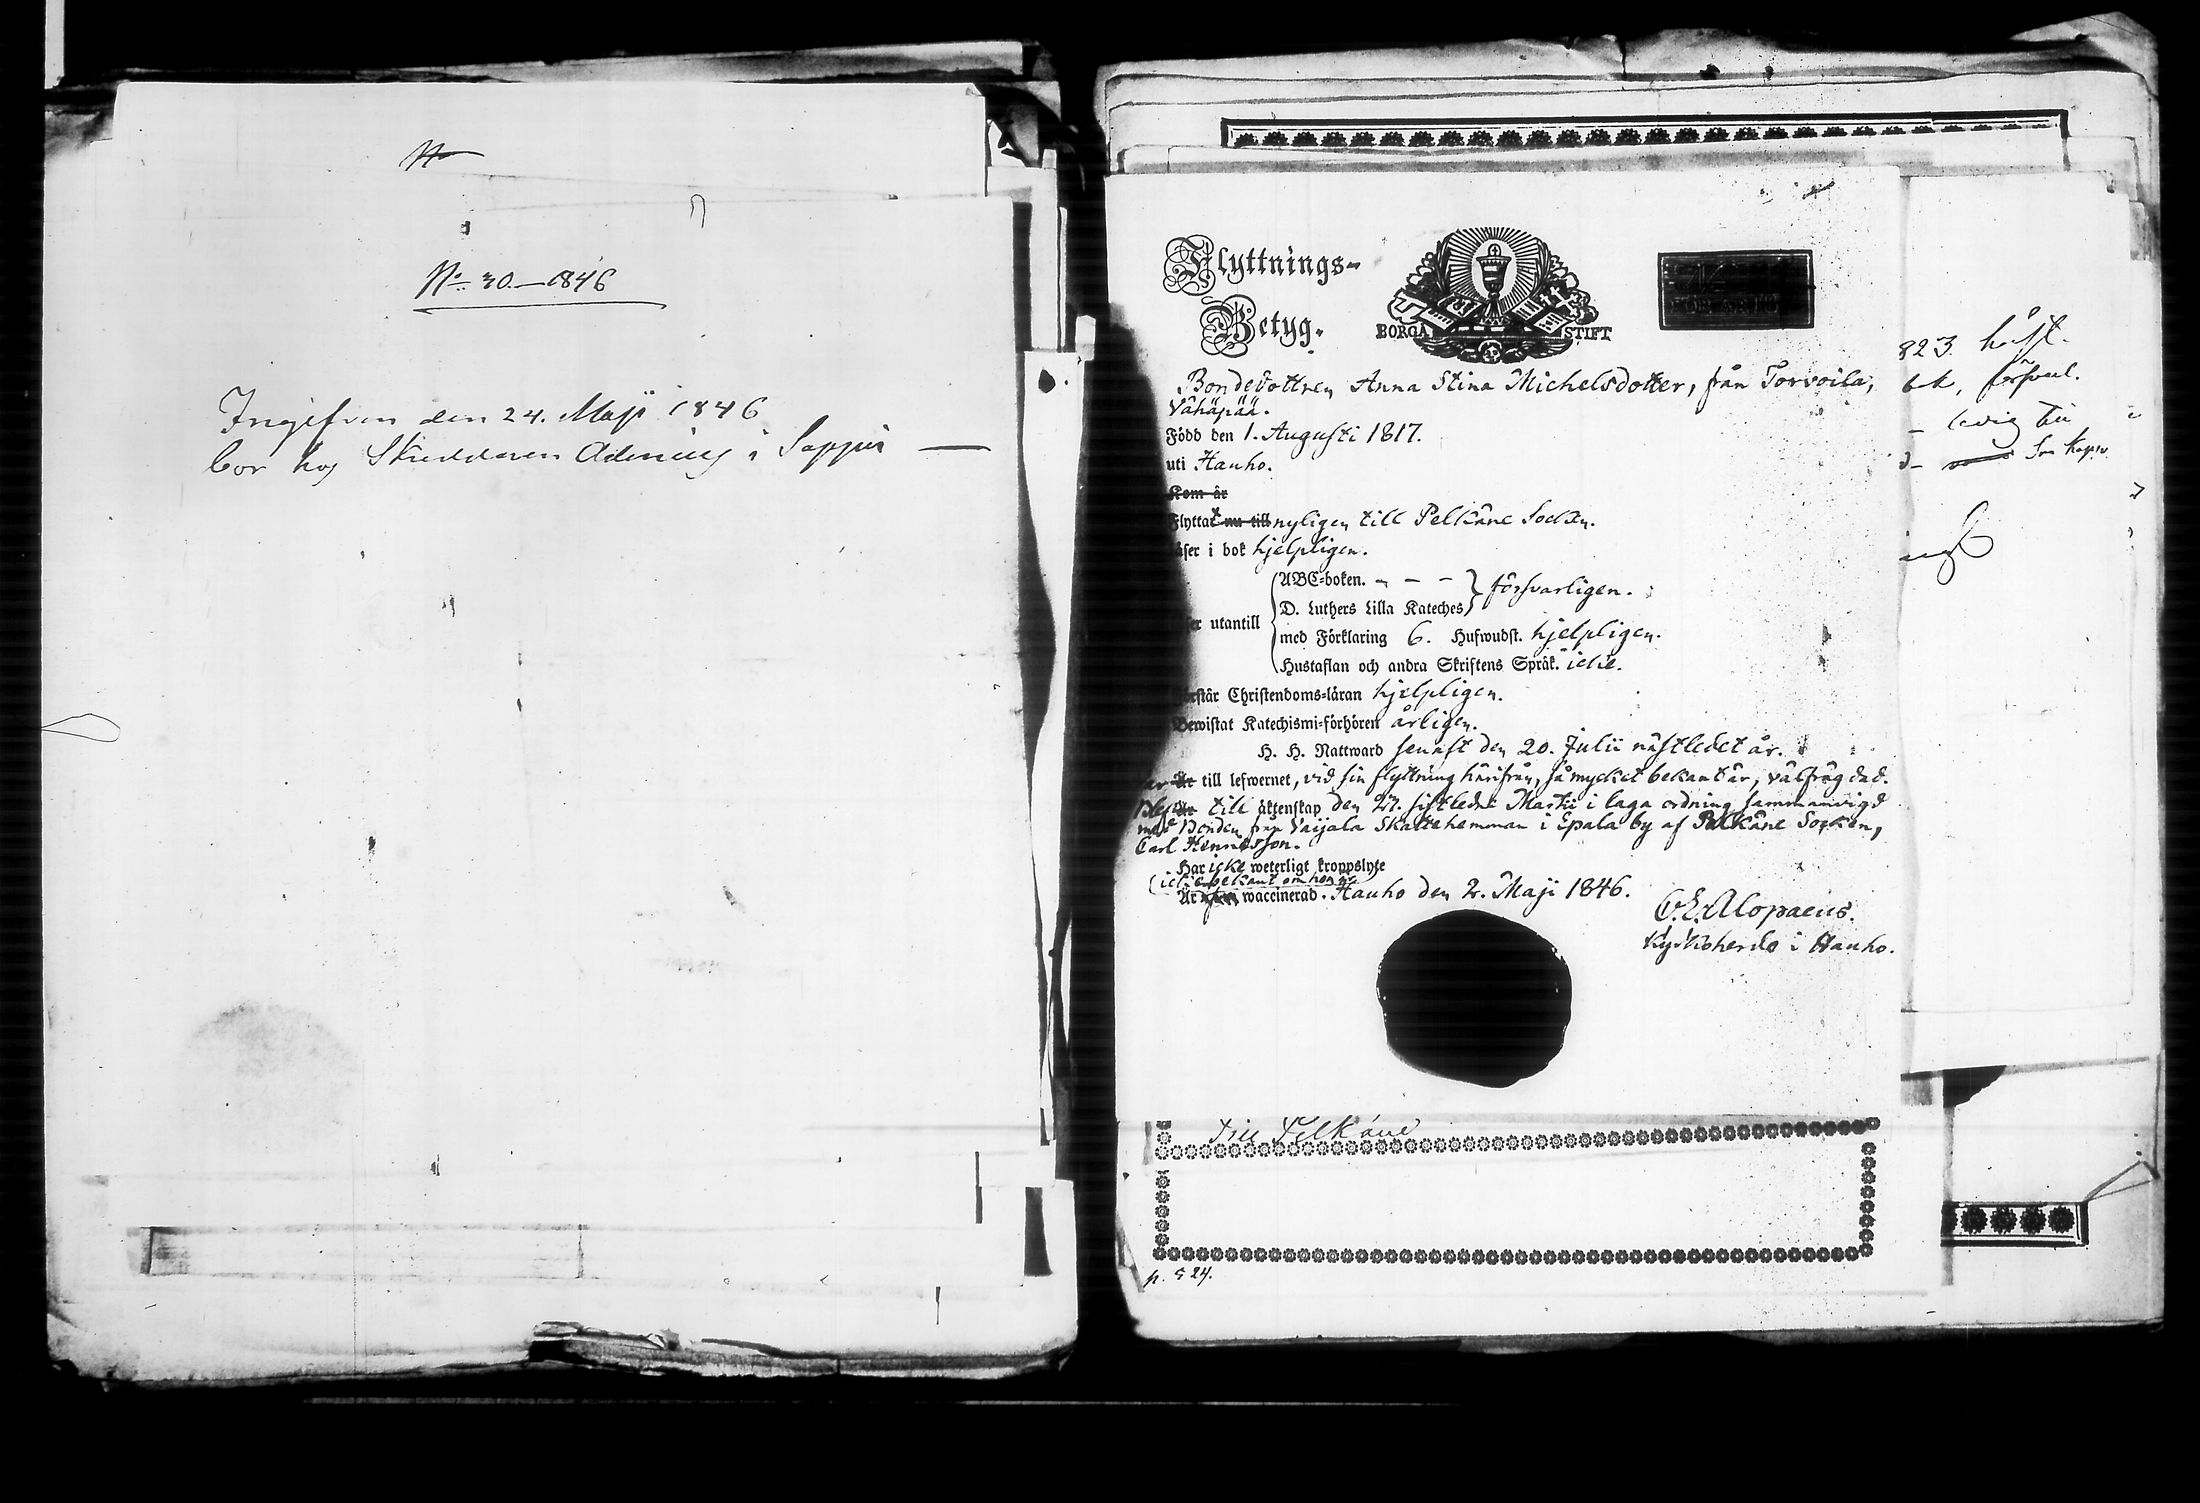 No
No 30.—1846
Ingifven den 24. Maji 1846
bor hos Skräddaren i Sappi
Flyttnings-
Betyg.
BORGÅ STIFT
Bondedottren Anna Stina Michelsdotter, från Torvoila,
Vähäpää.
Född den 1. Augusti 1817.
uti Hauho.
Kom år
Flyttat nu till nyligen till Pelkäne Socken.
äser i bok hjelpligen.
ABC-boken. – – – försvarligen.
D. Luthers Lilla Kateches
er utantill
med Förklaring 6. Hufwudst. hjelpligen.
Hustaflan och andra Skriftens Språk. icke.
örstår Christendoms-läran hjelpligen.
Bewistat Katechismi-förhören årligen.
H. H. Nattward senast den 20. Julii nästledet år.
var Är till lefwernet, vid sin flyttning härifrån, så mycket bekant är, välfrägdad.
Blef Är till äktenskap den 27. sistledne Martii i laga ordning sammanvigd
med Bonden från Vaijala Skattehemman i Epala by af Pelkäne Socken,
Carl Henricsson.
Har icke weterligt kroppslyte
(icke bekant om hon är
Är waccinerad. Hauho den 2. Maji 1846.
C. E. Alopaeus.
Kyrkoherde i Hauho.
Till Pelkäne
p. 524.
823. häft.
bok, försvarl.
– ledig till